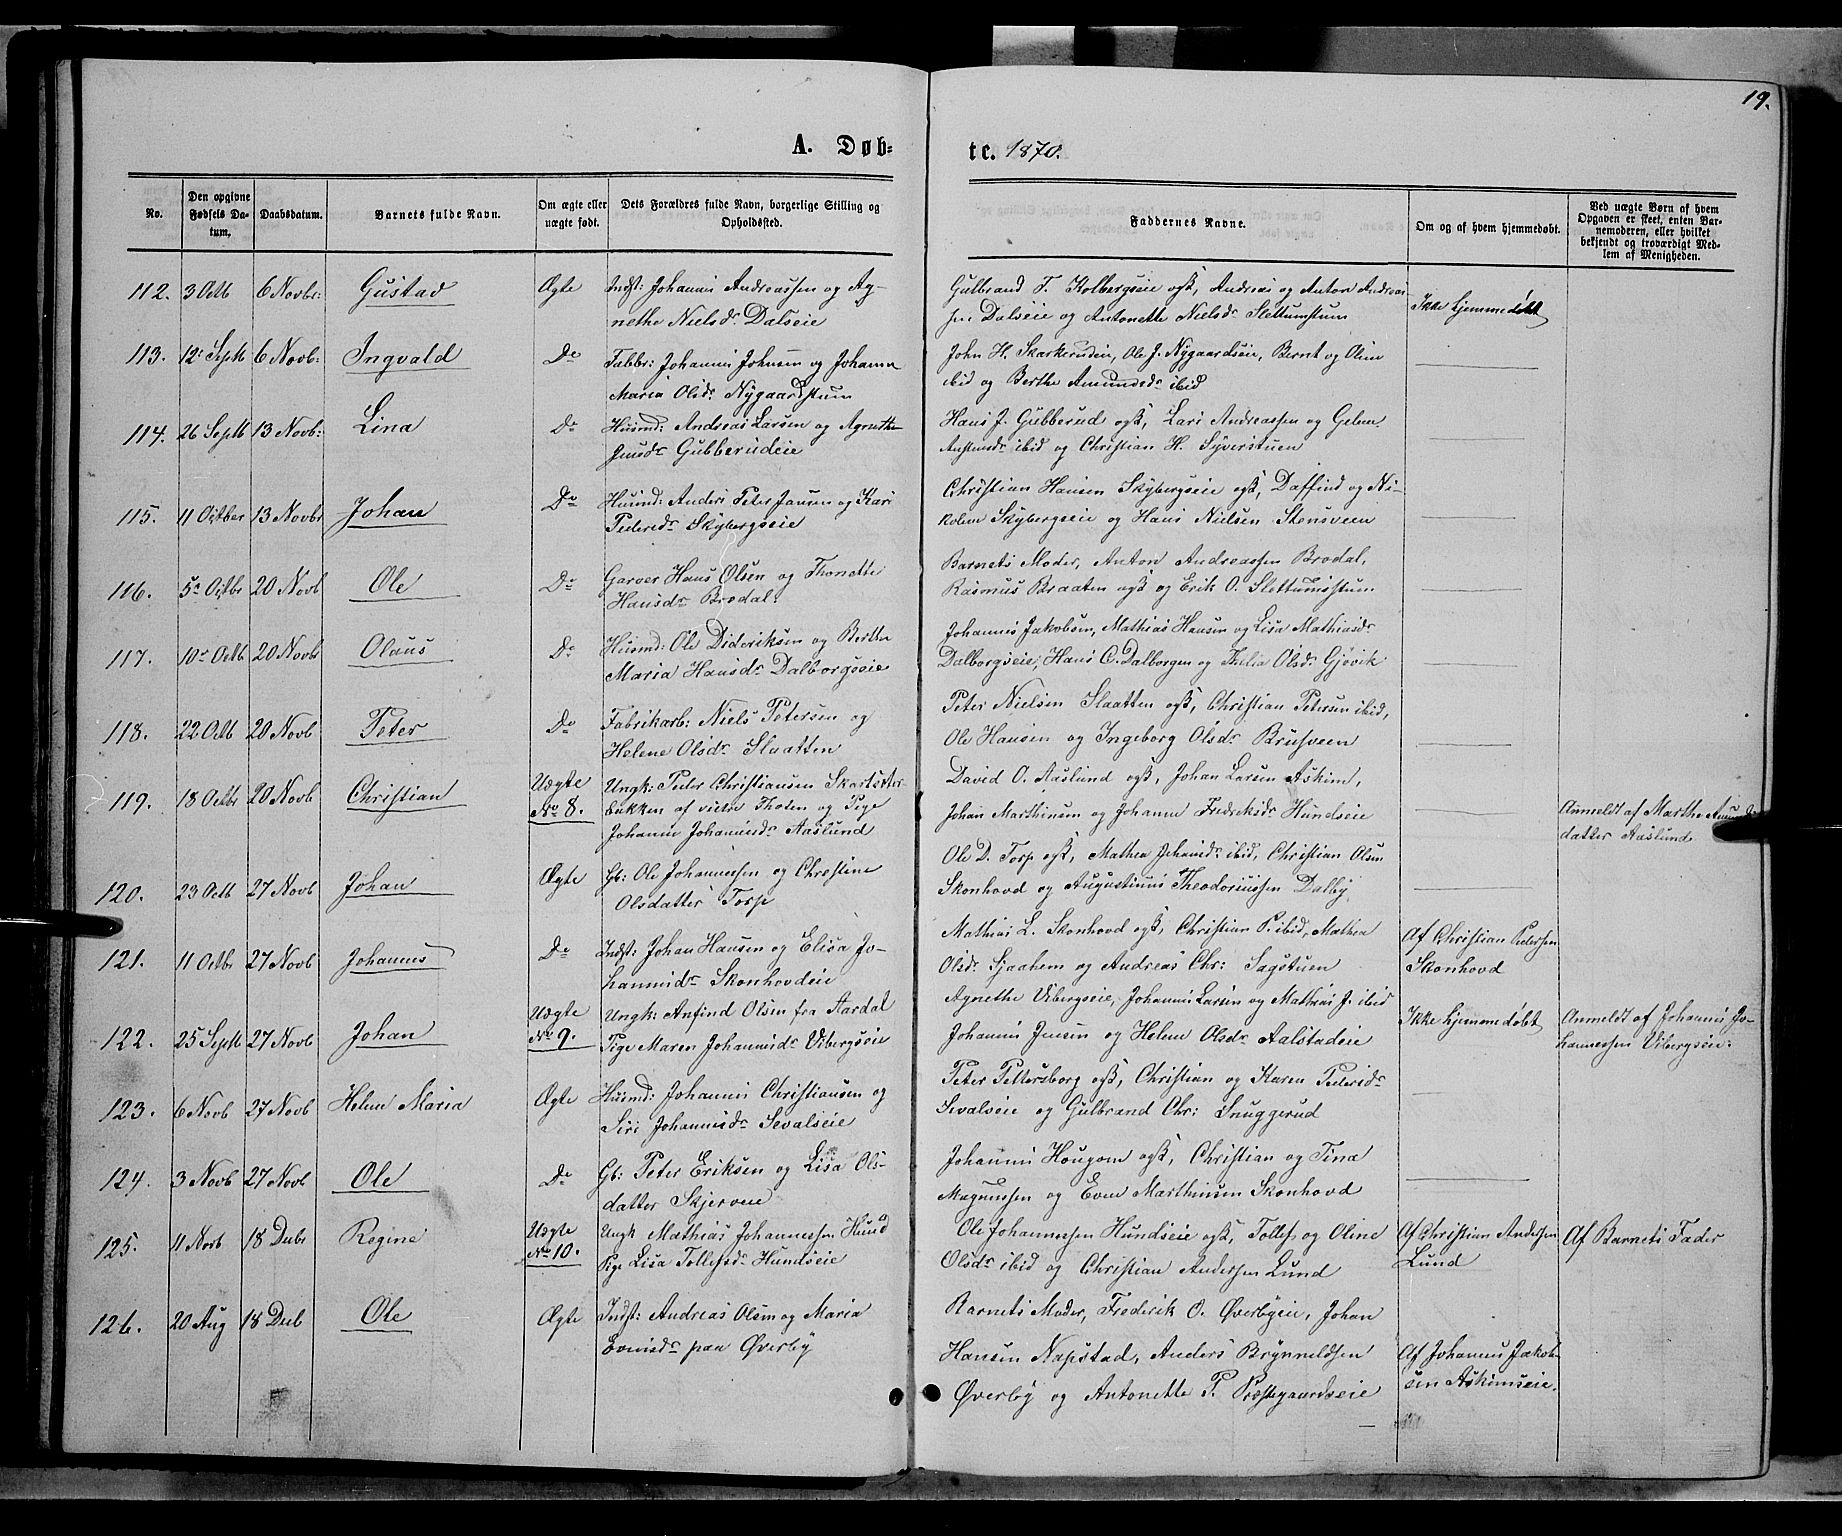 19.
A. Døb-
te. 1870.
No.
Den opgivne Fødsels Da-
tum.
Daabsdatum.
Barnets fulde Navn.
Om ægte eller
uægte født.
Dets Forældres fulde Navn, borgerlige Stilling og
Opholdssted.
Faddernes Navne.
Om og af hvem hjemmedøbt.
Ved uægte Børn af hvem
Opgaven er skeet, enten Bar-
nemoderen, eller hvilket
bekjendt og troværdigt Med-
lem af Menigheden.
112. 3 Octb 6 Novbr: Gustav Ægte Indst: Johannis Andreassen og Ag-
nethe Nielsdr Dalseie
Gulbrand T. Kolbergseie ogsk, Andreas og Anton Andreas
sen Dalseie og Antonette Nielsdr Slettumstuen
Ikke hjemmedøbt
113. 12 Septb 6 Novb: Ingvald Do Fabbr: Johannis Johnsen og Johanne
Maria Olsdr Nygaardstuen
John H. Skarkerudeie, Ole J. Nygaardseie, Bernt og Oline
ibid og Berthe Amundsdr ibid
114. 26 Septb 13 Novb: Lina Do Husmd: Andreas Larsen og Agnethe
Jensdr Gubberudeie
Hans J. Gubberud ogsk, Lars Andreassen og
ibid og Christian H. Syverstuen
115. 11 Octber 13 Novbr Johan Do Husmd: Anders Peter Jansen og Kari
Pedersdr Skybergseie
Christian Hansen Skybergseie ogsk, Daffind og Ni-
koline Skybergseie og Hans Nielsen Stensveen
116. 5 Octbr 20 Novb Ole Do Garver Hans Olsen og Thonette
Hansdr Brodal.
Barnets Moder, Anton Andreassen Brodal,
Rasmus Braaten ogsk og Erik O. Slettumsstuen
117. 10 Octb 20 Novbr Olaus Do Husmd: Ole Dideriksen og Berthe
Maria Hansdr Dalborgseie
Johannis Jakobsen, Mathias Hansen og Lisa Mathiasdr
Dalborgseie, Hans C. Dalborgen og Thilia Olsdr Gjøvik
118. 22 Octb 20 Novb Peter Do Fabrikarb: Niels Petersen og
Helene Olsdr Slaatten
Peter Nielsen Slaatten ogsk, Christian Petersen ibid,
Ole Hansen og Ingeborg Olsdr Brusveen
119. 18 Octbr 20 Novb Christian Uægte
No 8.
Ungk: Peder Christiansen Skartseter-
bakken af vestre Thoten og Pige
Johanne Johannisdr Aaslund
David O. Aaslund ogsk, Johan Larsen Askim,
Johan Marthinsen og Johanne Frederiksdr Hundseie
Anmeldt af Marthe Amunds
datter Aaslund
120. 23 Octb 27 Novb Johan Ægte Gb: Ole Johannessen og Christine
Olsdatter Torp
Ole D. Torp ogsk, Mathea Johansdr ibid, Christian Olsen
Skonhovd og Augustinus Theodoriussen Dalby
121. 11 Octbr 27 Novb Johannes Do Indst: Johan Hansen og Elisa Jo-
hannisdr Skonhovdeie
Mathias L. Skonhovd ogsk, Christian P. ibid, Mathea
Olsdr Sjaahem og Andreas Chr: Sagstuen
Af Christian Pedersen
Skonhovd
122. 25 Septb 27 Novb Johan Uægte
No 9.
Ungk: Anfind Olsen fra Aardal
Pige Maren Johannisdr Vibergseie
Agnethe Vibergseie, Johannis Larsen og Mathias J. ibid
Johannis Jensen og Helene Olsdr Aalstadeie
Ikke hjemmedøbt
Anmeldt af Johannis Jo-
hannessen Vibergseie.
123. 6 Novb 27 Novb Helene Maria Ægte Husmd: Johannis Christiansen og
Siri Johannisdr Sevalseie
Peter Pettersborg ogsk, Christian og Karen Pedersdr
Sevalseie og Gulbrand Chr: Snuggerud
124. 3 Novb 27 Novb Ole Do Gb: Peter Eriksen og Lisa Ols-
datter Skjerven
Johannis Hougom ogsk, Christian og Tina
Magnussen og Even Marthinsen Skonhovd
125. 11 Novb 18 Decbr Regine Uægte
No 10.
Ungk Mathias Johannessen Hund
Pige Lisa Tollefsdr Hundseie
Ole Johannessen Hundseie ogsk, Tollef og Oline
Olsdr ibid og Christian Andersen Lund
Af Christian Andersen
Lund
Af Barnets Fader
126. 20 Aug 18 Decb Ole Ægte Indst: Andreas Olsen og Maria
Evensdr paa Øverby
Barnets Moder, Frederik O. Øverbyeie, Johan
Hansen Napstad, Anders Brynnildsen
Øverby og Antonette P. Præstegaardseie
Af Johannis Jakob-
sen Askimseie.